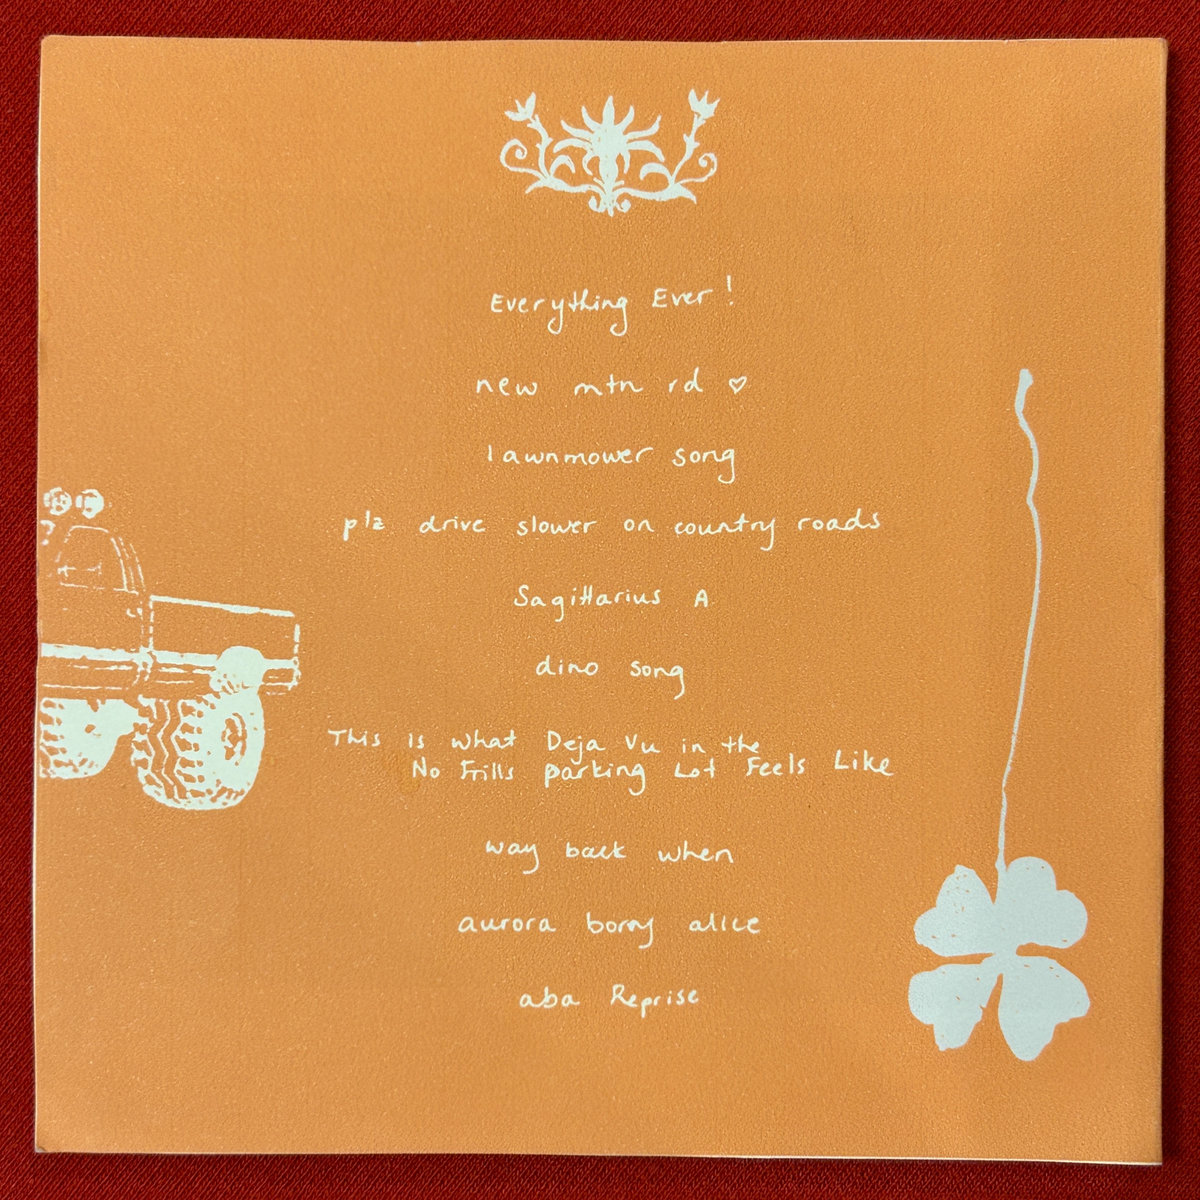 Everything Ever!
new mtn rd ♡
lawnmower song
plz drive slower on country roads
Sagittarius A
dino song
This is what Deja Vu in the
No Frills parking Lot Feels Like
way back when
aurora borry alice
aba Reprise